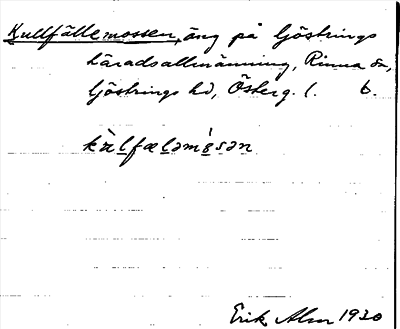 Kullfällemossen, äng på Göstrings
häradsallmänning, Rinna sn,
Göstrings hd, Österg. l. 6.
kùlfæləmós̩ən
Erik Alm 1930